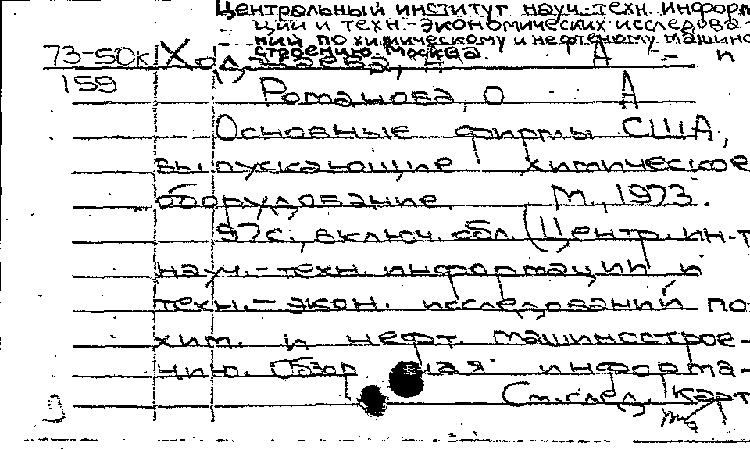 Центральный институт науч.-техн. информ
ции и техн.-экономических исследова-
ний по химическому и нефтяному машино
строению. Москва.
73-50к
159 Романова, О А
Основные фирмы США,
выпускающие химическое
оборудование. М., 1973.
97с., включ. обл. (Центр. ин-т
науч.-техн. информации и
техн.-экон. исследований по
хим. и нефт. машиносстрое-
нию. Обзор ная информа-
См. след. карт